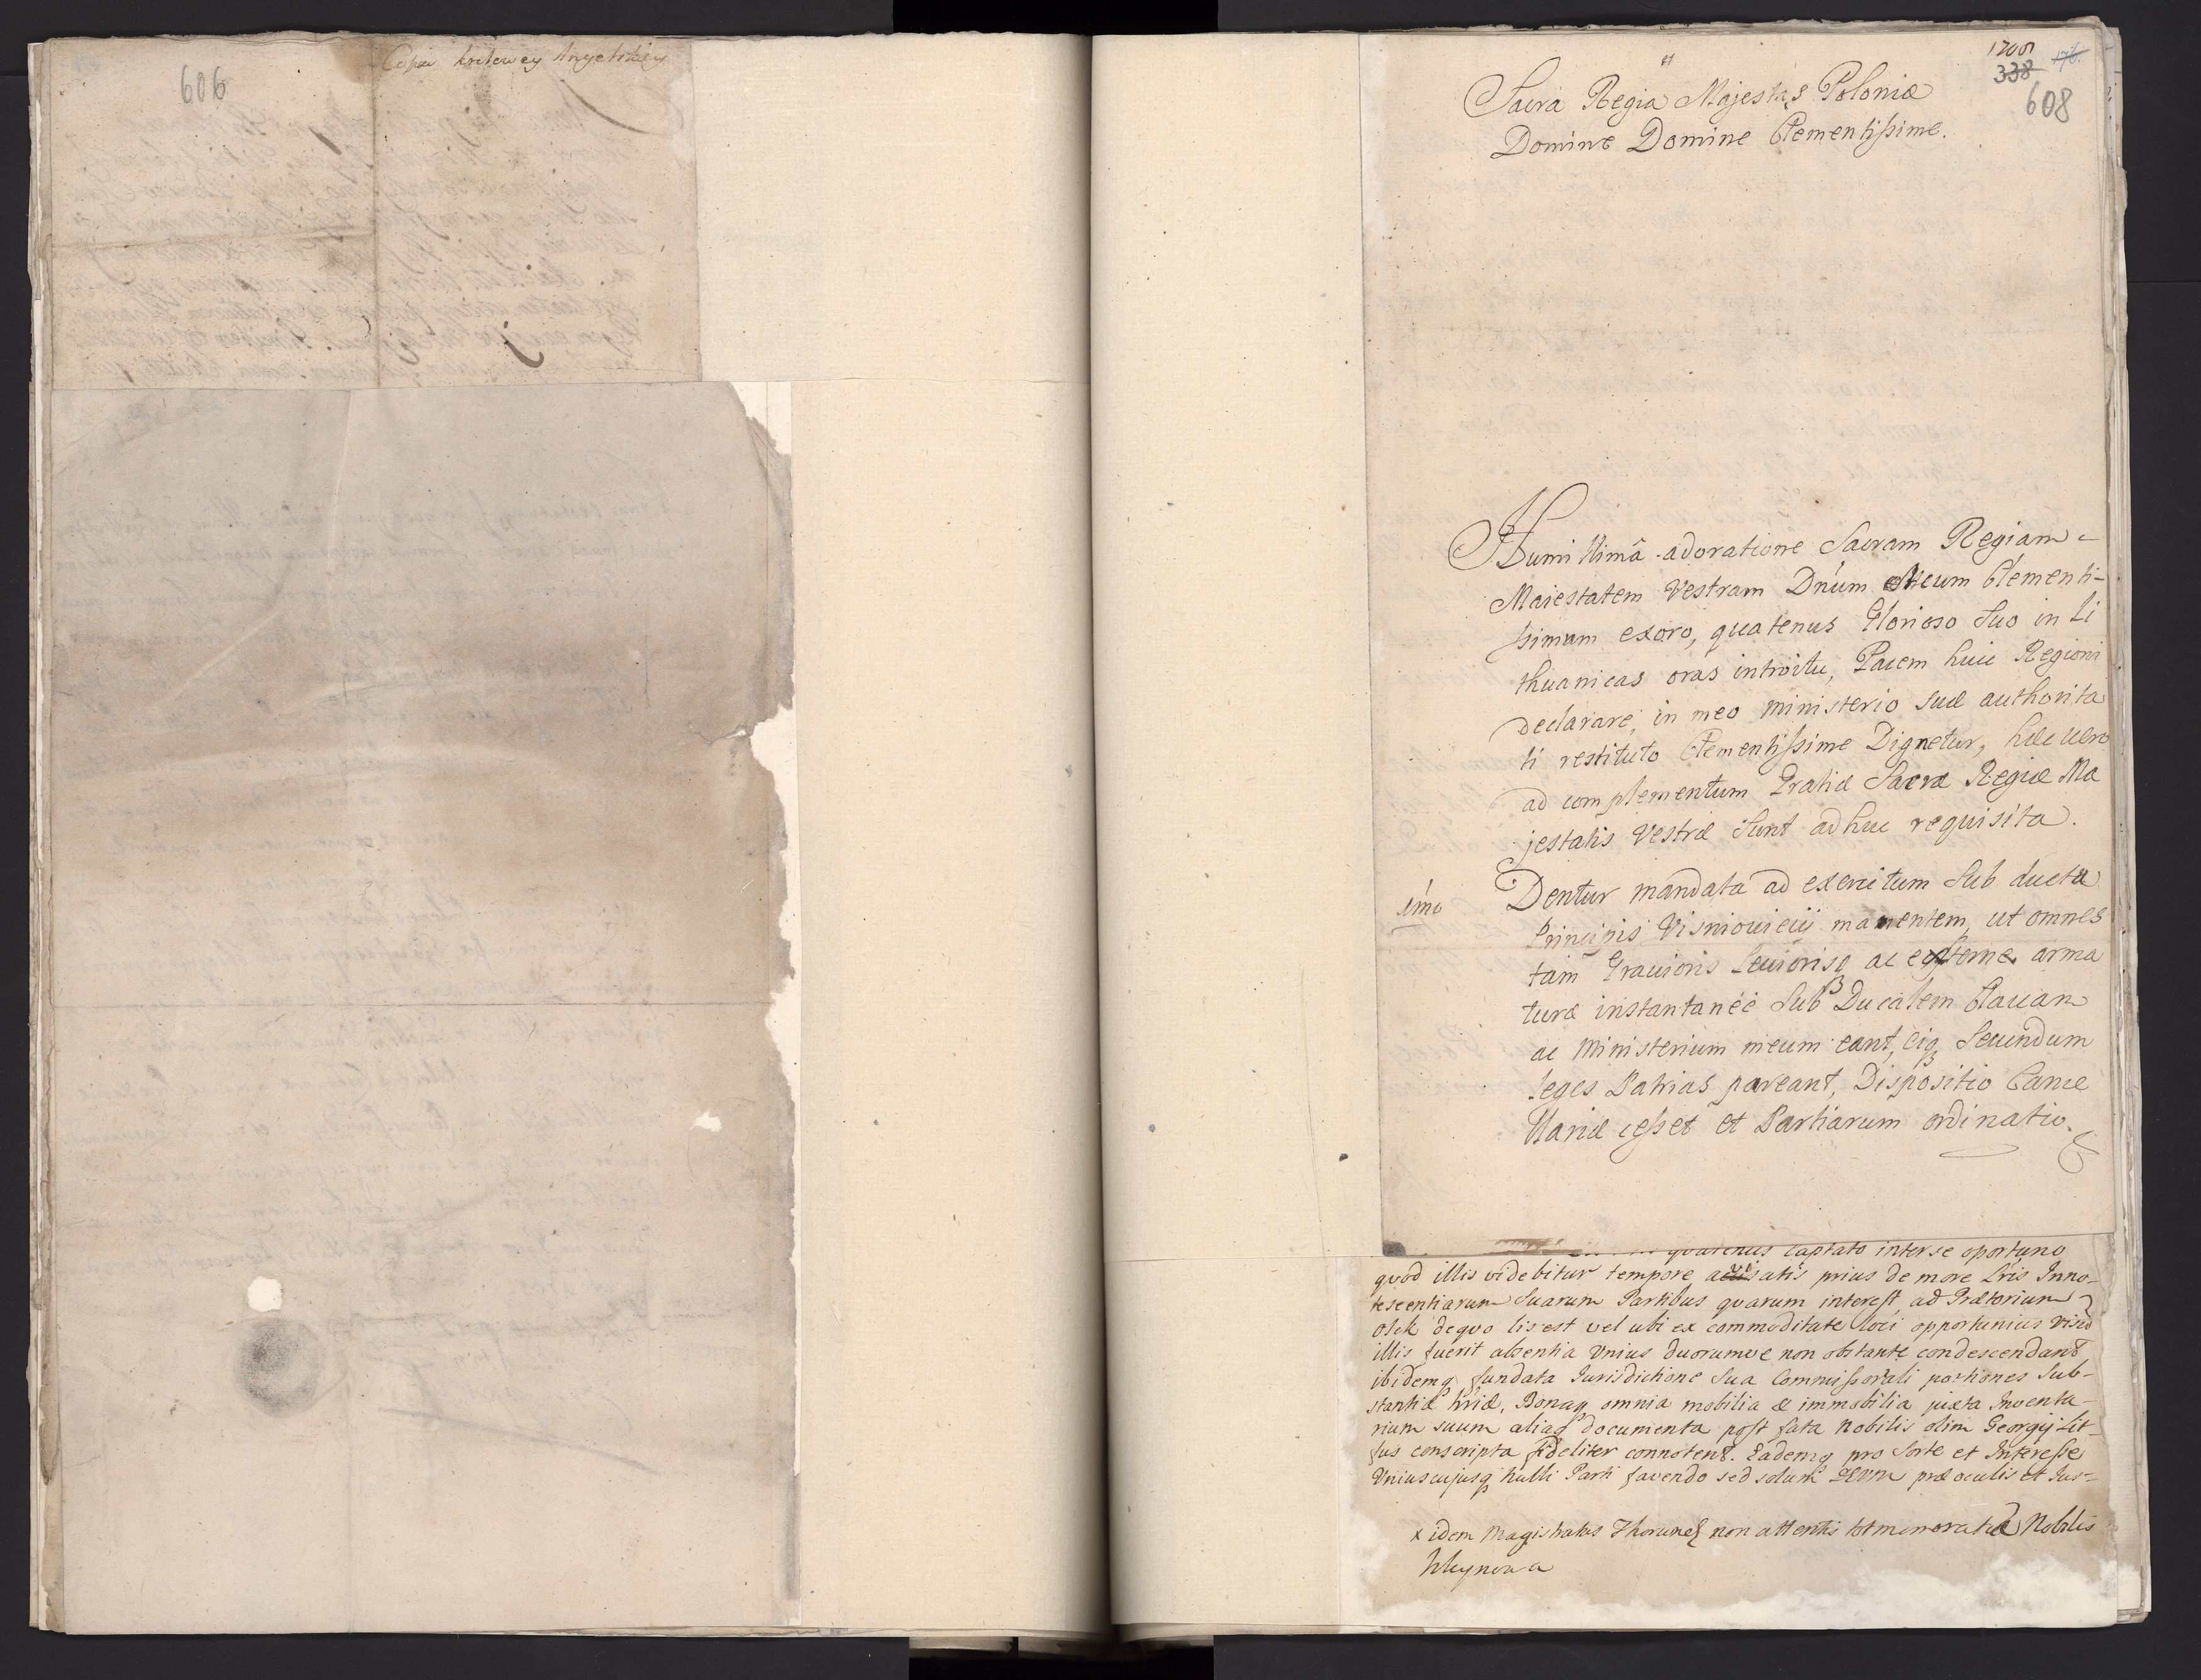 606
Copia krolewey Angelskiey
1705
338
176.
608
Sacra Regia Majestas Poloniæ
Domine Domine Clementissime.
Humillimâ adoratione Sacram Regiam
Maiestatem Vestram Dnum Meum Clementi-
ssimum exoro, quatenus Glorioso Suo in Li
thuanicas oras introitu, Pacem huic Regioni
declarare, in meo ministerio suæ authorita
ti restituto Clementissime Dignetur, hæc vero
ad complementum Gratiæ Sacræ Regiæ Ma
jestatis Vestræ sunt adhuc requisita.
1mo Dentur mandata ad exercitum sub ductu
Principis Visniouicij manentem, ut omnes
tam Grauioris Leuiorisq ac externe arma
turæ instantaneè sub Ducalem Clauam
ac Ministerium meum eant, eiq secundum
leges Patrias pareant, Dispositio Cance
llariæ cesset et Partiarum ordinatio.
quatenus captato inter se oportuno
quod illis videbitur tempore, satis prius de more Lris Inno-
tescentiarum Suarum Partibus quarum interest, ad Prætorium
dequo lis est vel ubi ex commoditate loci opportunius visũ
illis fuerit absentia Vnius duorumve non obstante condescendant
ibidemq fundata Jurisdictione Sua Commissoriali portiones Sub-
stantiæ Bonaq omnia mobilia & immobilia juxta Inventa-
rium suum aliaq documenta post fata Nobilis olim Georgij Lit-
fus conscripta fideliter connotent. Eademq pro Sorte et Interesse
Vniuscujusq Nulli Parti favendo sed solum DEUM præ oculis et Jus-
x idem Magistratus Thorunen non attentis memoratæ Nobilis